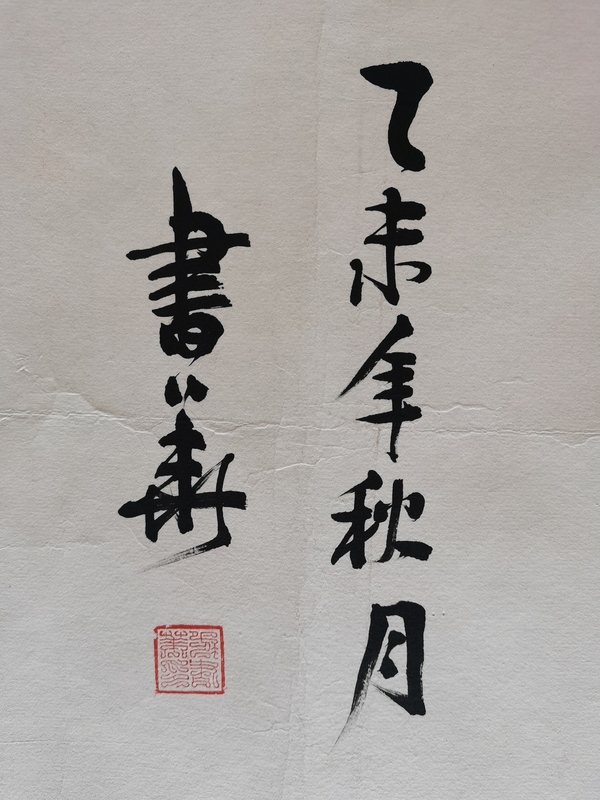 乙未年秋月
書